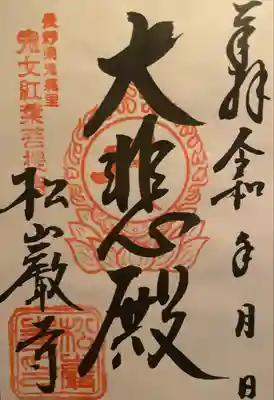 奉拝
令和 年 月 日
大悲殿
長野県鬼無里
鬼女紅葉菩提
松巖寺